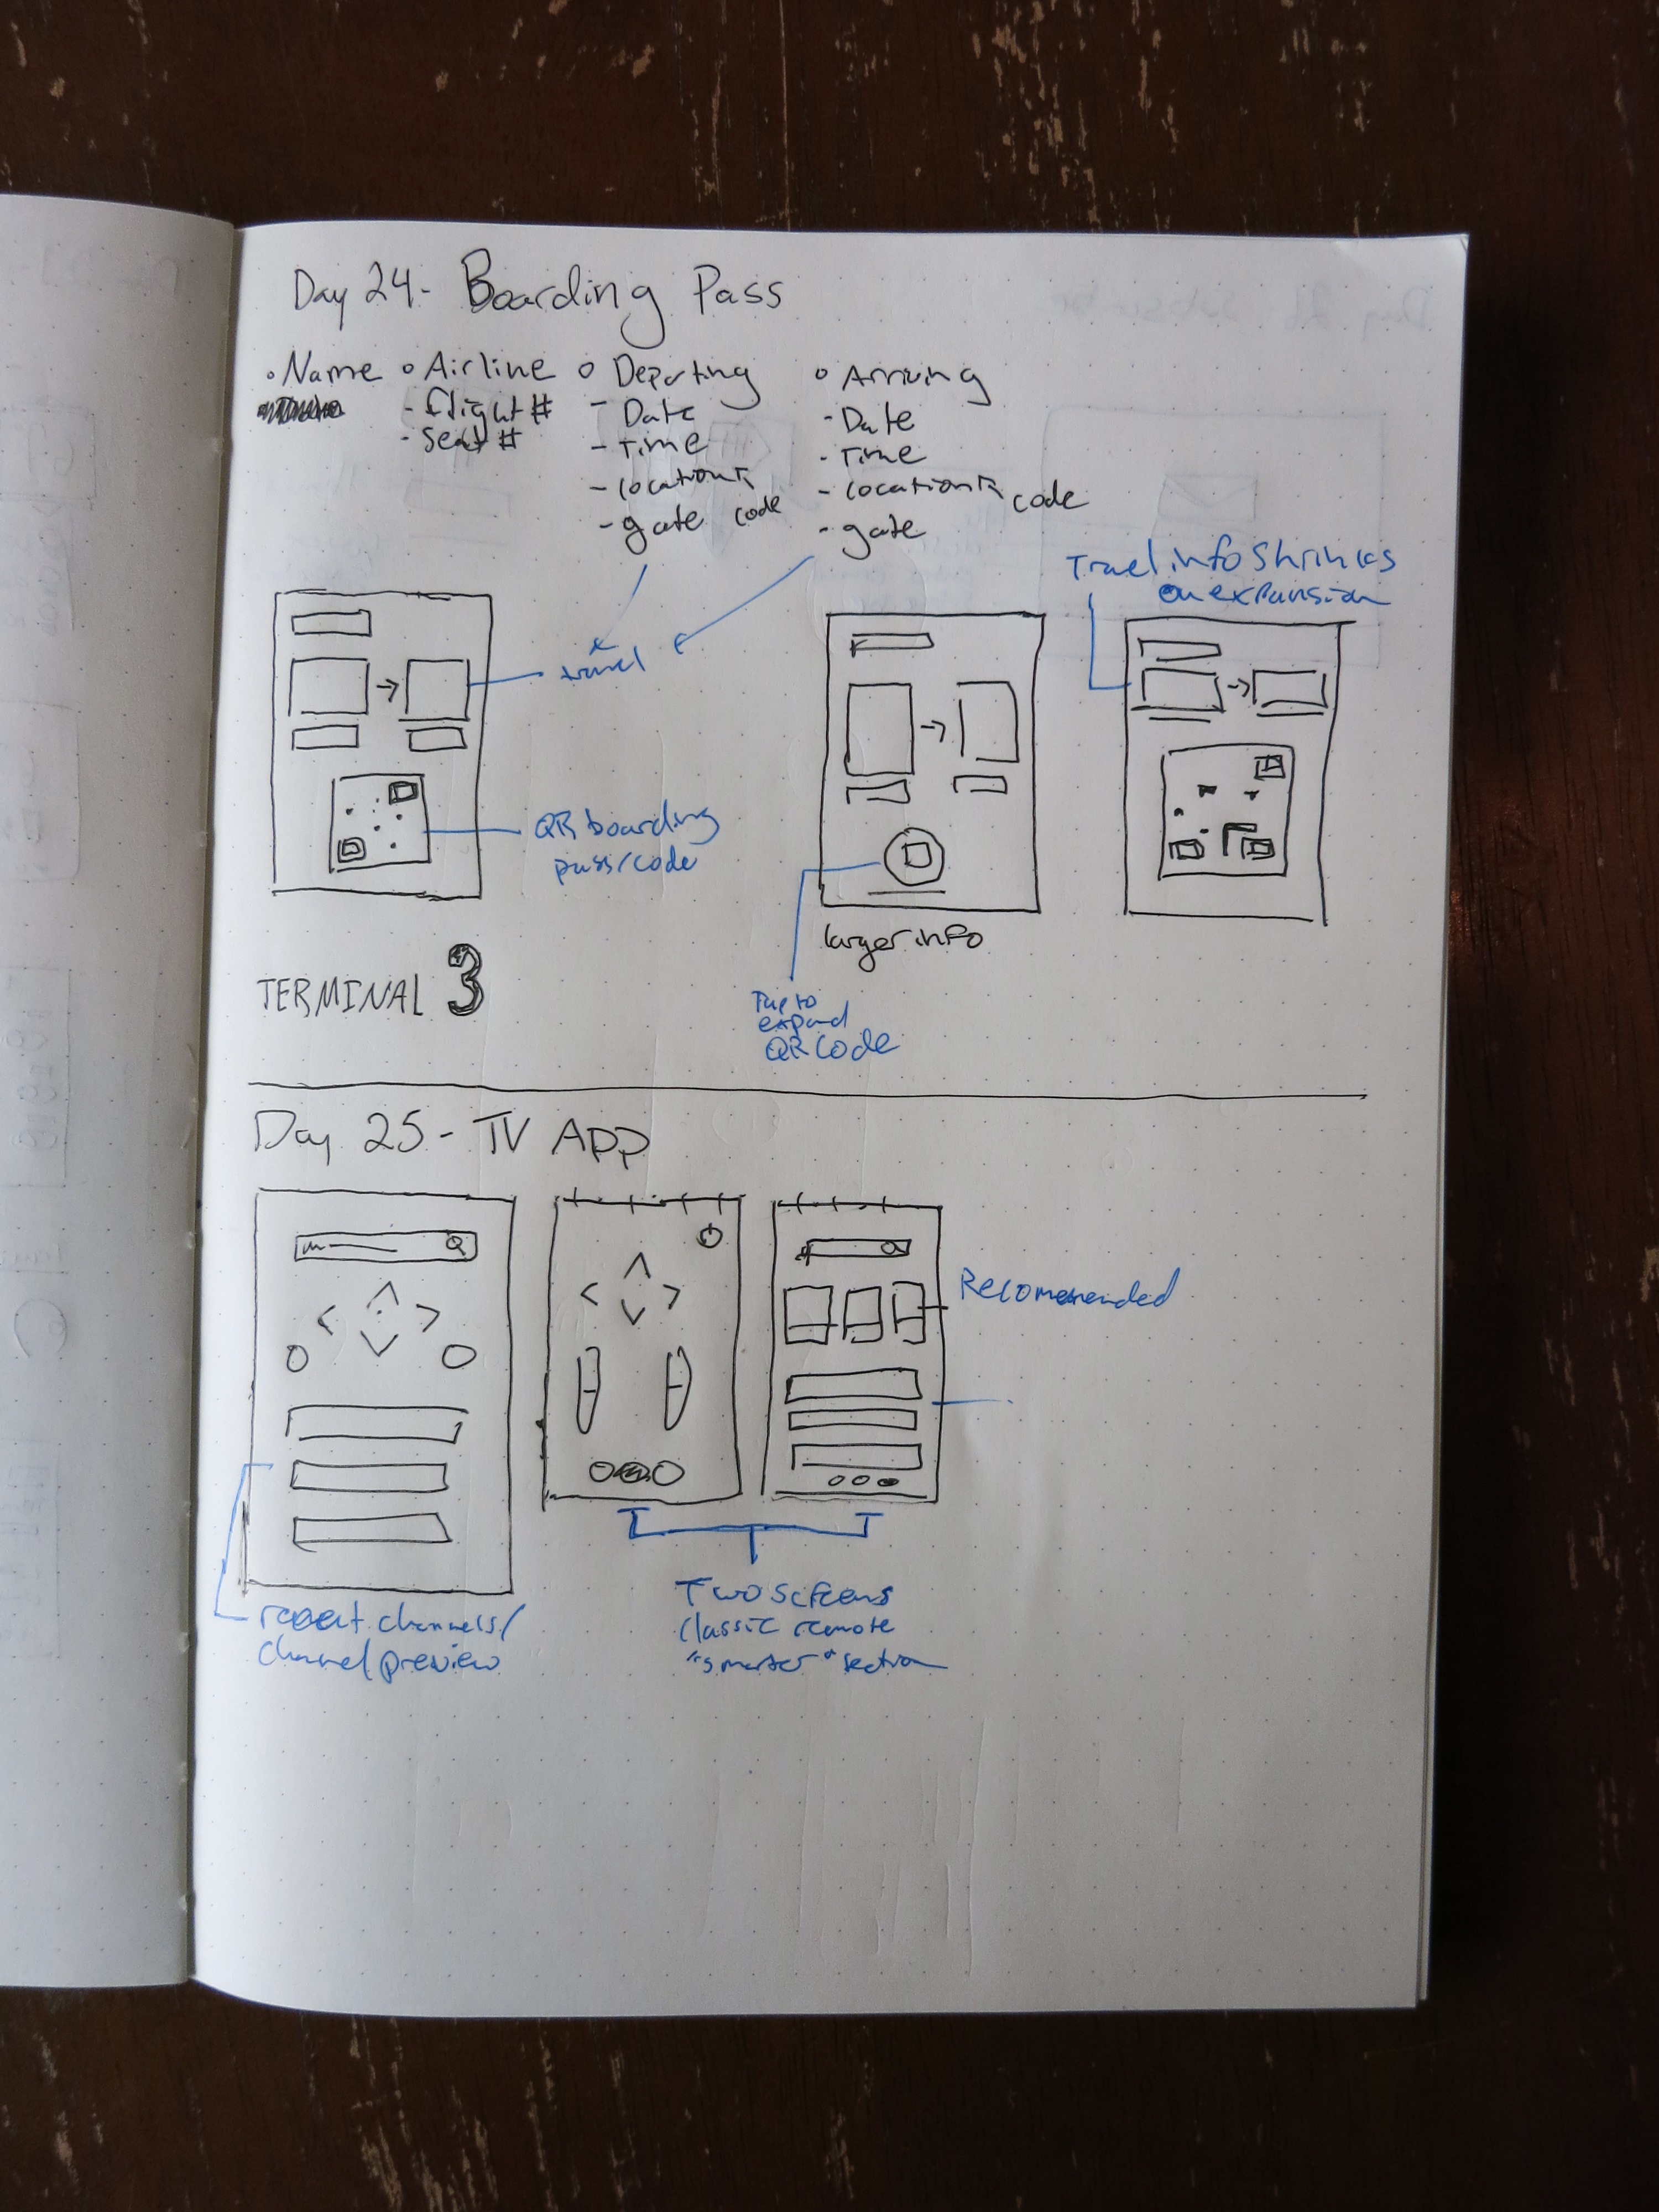 Day 24 - Boarding Pass
• Name
• Airline
- flight #
- seat #
• Departing
- Date
- Time
- location
code
- gate
• Arriving
- Date
- Time
- location
code
- gate
travel
QR boarding
pass/code
Travel info shrinks
on expansion
larger info
Tap to
expand
QR code
TERMINAL 3
Day 25 - TV APP
Recomended
recent channels/
channel preview
Two screens
classic remote
"smarter" section